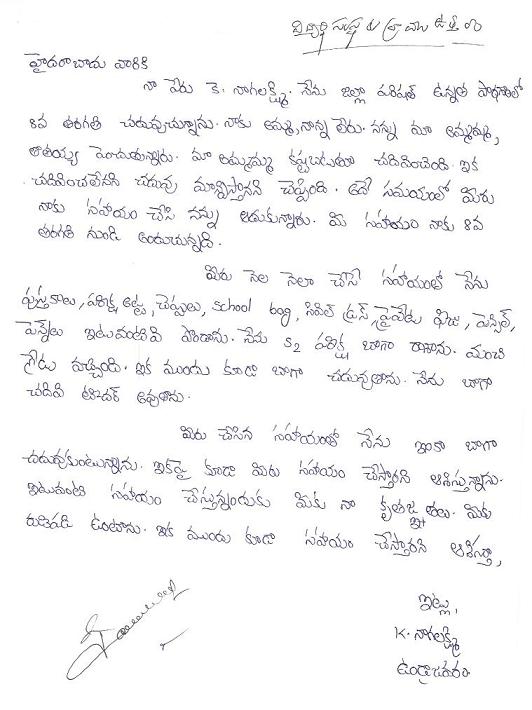 విద్యార్థి సంస్థ
హైదరాబాదు వారికి
నా పేరు కె. నాగలక్ష్మి. నేను జిల్లా పరిషత్ ఉన్నత పాఠశాలలో
8వ తరగతి చదువుచున్నాను. నాకు అమ్మ, నాన్న లేరు. నన్ను మా అమ్మమ్మ,
తాతయ్య పెంచుతున్నారు. మా అమ్మమ్మ కష్టబడుతూ చదివించింది. ఇక
చదివించలేనని చదువు మాన్పిస్తానని చెప్పింది. అదే సమయంలో మీరు
నాకు సహాయం చేసి నన్ను ఆదుకున్నారు. మీ సహాయం నాకు 8వ
తరగతి నుండి అందుచున్నది.
మీరు నెల నెలా చేసే సహాయంలో నేను
పుస్తకాలు, పరీక్ష అట్ట, చెప్పులు, school bag, సివిల్ డ్రస్, ప్రైవేటు ఫీజు, పెన్సిల్,
పెన్నులు ఇటువంటివి పొందాను. నేను S2 పరీక్ష బాగా రాశాను. మంచి
గ్రేడు వచ్చింది. ఇక ముందు కూడా బాగా చదువుతాను. నేను బాగా
చదివి టీచర్ అవుతాను.
మీరు చేసిన సహాయంతో నేను ఇంకా బాగా
చదువుకుంటున్నాను. ఇకపై కూడా మీరు సహాయం చేస్తారని ఆశిస్తున్నాను.
ఇటువంటి సహాయం చేస్తున్నందుకు మీకు నా కృతజ్ఞతలు. మీకు
రుణపడి ఉంటాను. ఇక ముందు కూడా సహాయం చేస్తారని ఆశిస్తూ,
ఇట్లు,
K. నాగలక్ష్మి
ఉండ్రాజవరం